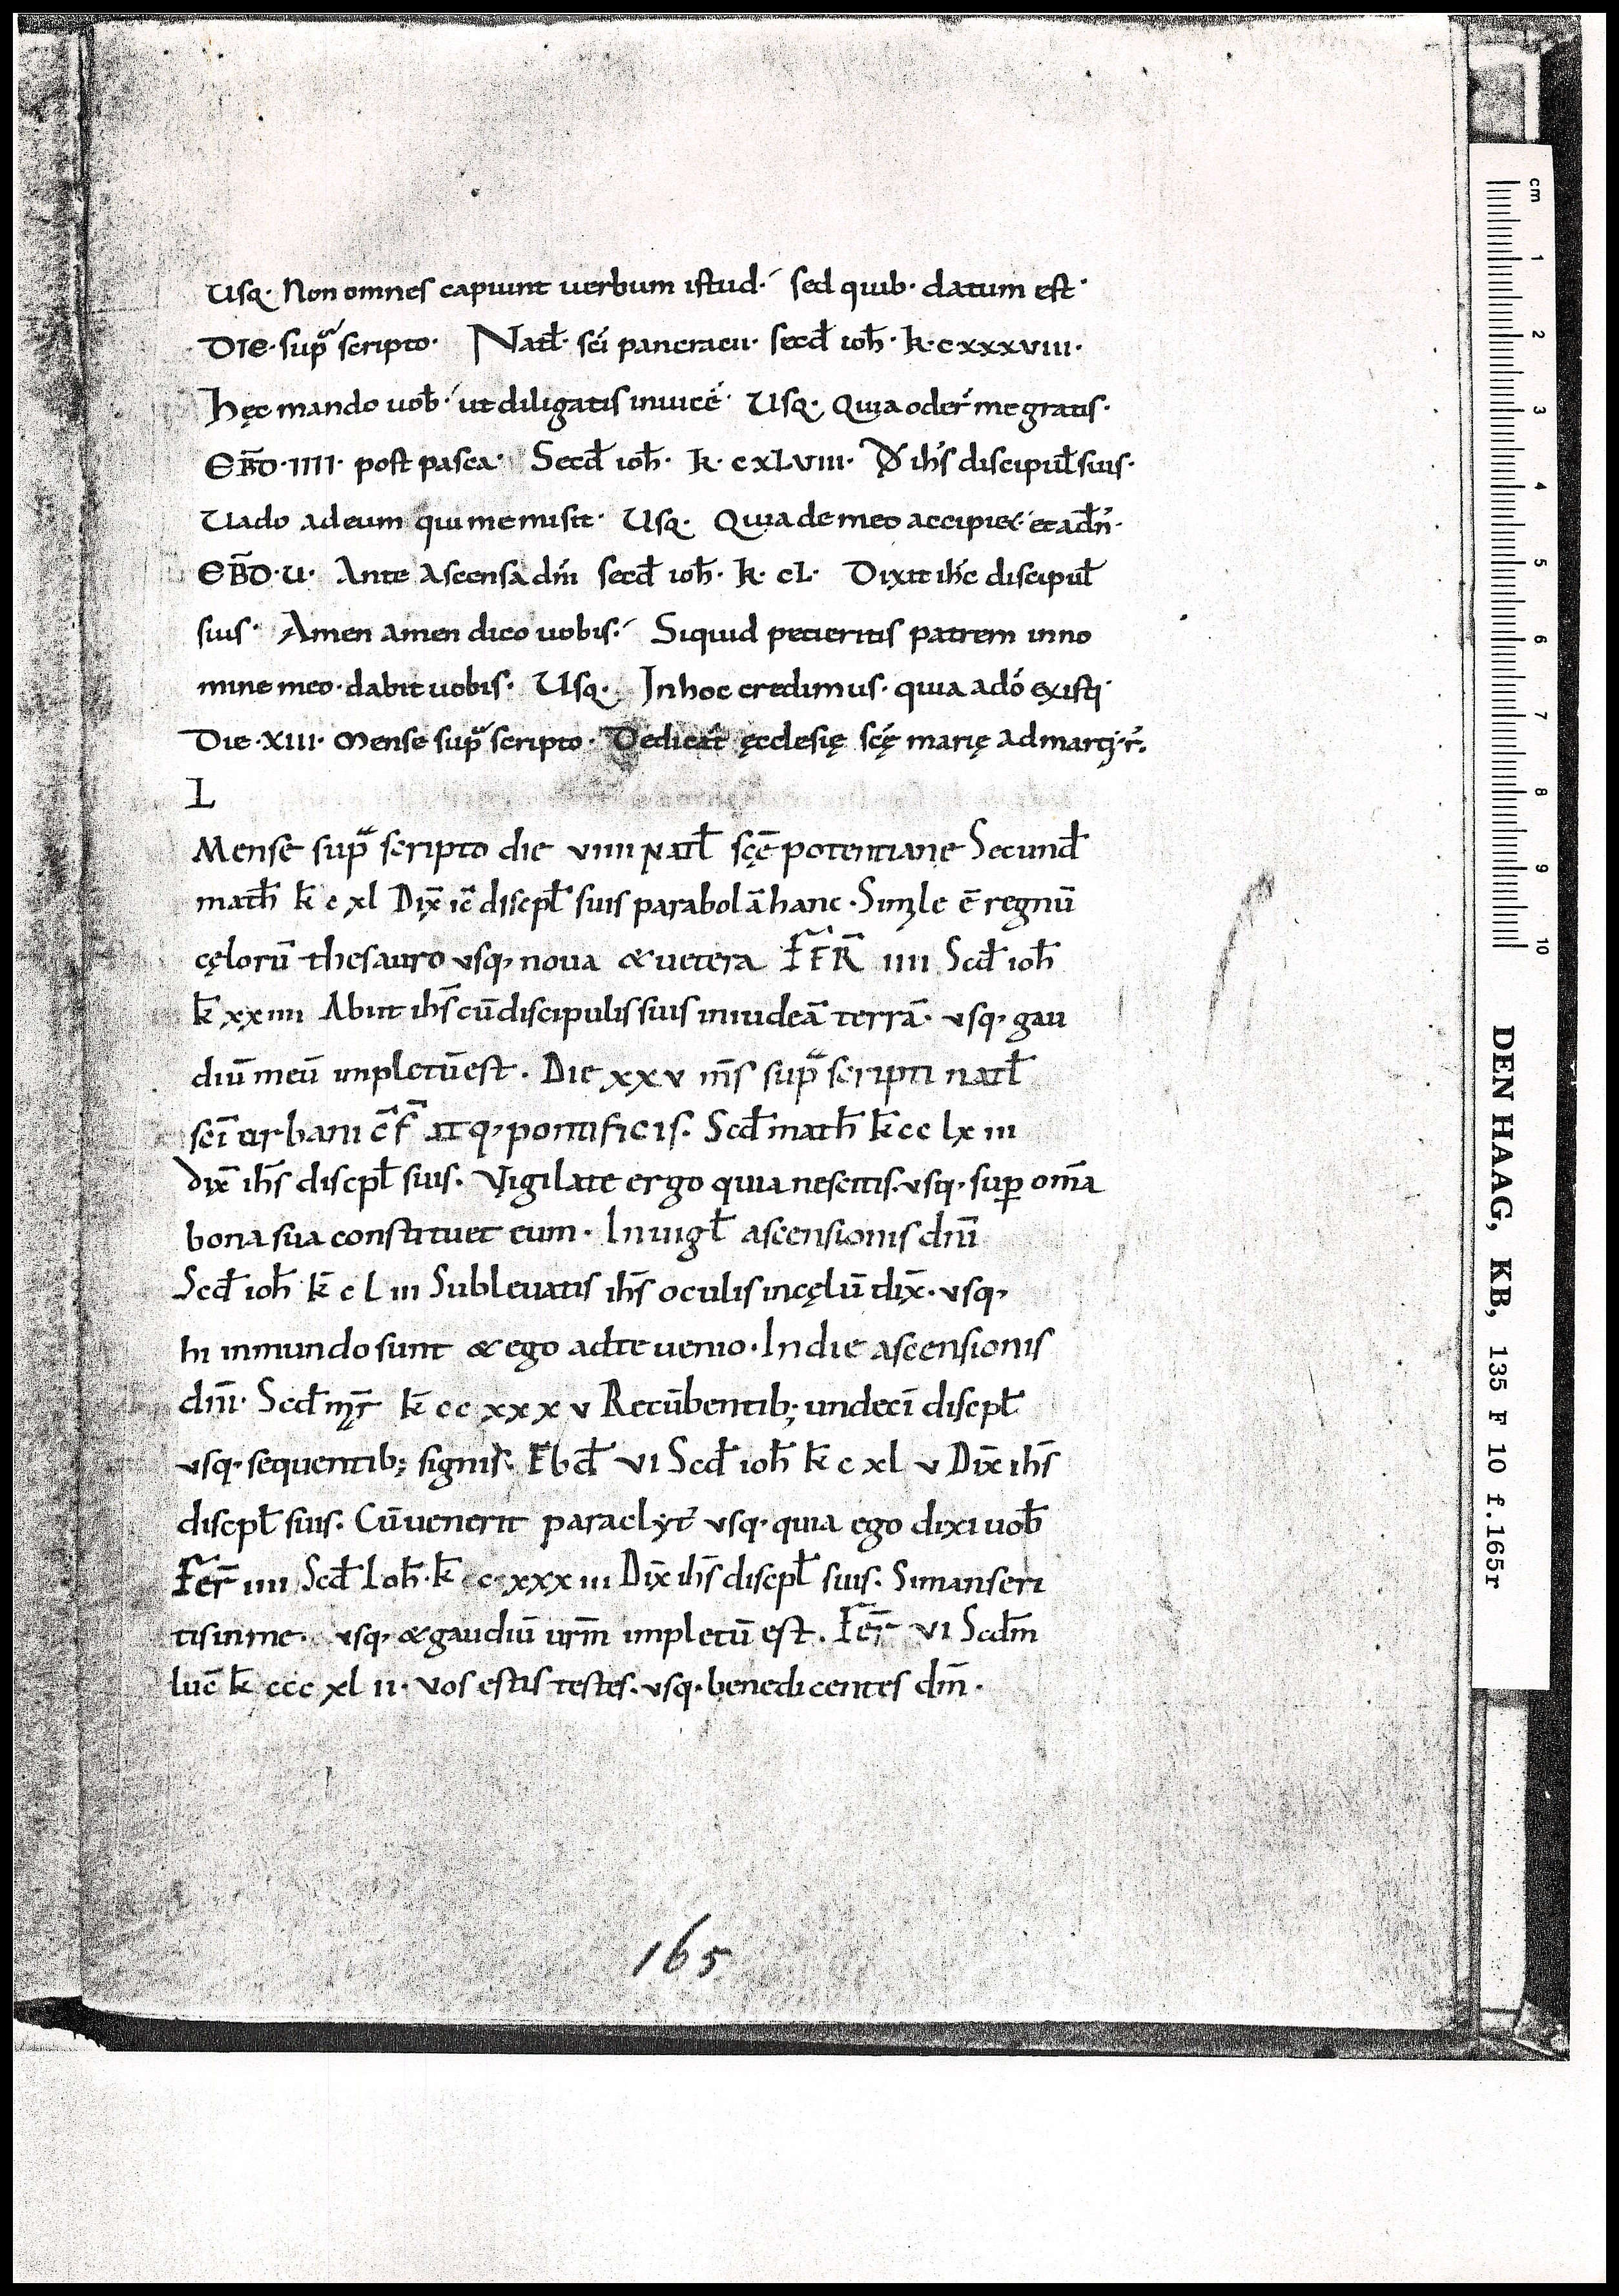 Usq· Non omnes capiunt uerbum istud· sed quib· datum est·
Die· sup^a scripto· Natł· sc̄i pancracii· secđ ioh̄· k· cxxxviii·
Hęc mando uob̄· ut diligatis inuicē· Usq· Quia oder̄ me gratis·
EBD̄· IIII· post pasca· Secđ ioh̄· k· cxLviii· D̄x ih̄s discipuł suis·
Uado ad eum qui me misit· Usq· Quia de meo accipiet· et adn̄·
EBD̄· U· Ante Ascensa dn̄i secđ ioh̄· k· cL· Dixit ih̄c discipuł
suis· Amen amen dico uobis· Siquid petieritis patrem in no
mine meo· dabit uobis· Usq· In hoc credimus· quia a dō existi·
Die· XIII· Mense sup^a scripto· Dedicat̄ ęcclesię sc̄ę marię ad martyr̄·
L
Mense sup^a scripto die viiii Natł sc̄ę potentiane Secunđ
math̄ k̄ c xl Dix̄ ic̄ discpł suis parabolā hanc· Simle ē regnū
cęlorū thesauro vsq· noua & uetera FER̄ iiii Scđ ioh̄
k̄ xxiiii Abiit ih̄s cū discipulis suis in iudeā terrā· vsq· gau
diū meū impletū est· Die xxv m̄s sup^a scripti natł
sc̄i urbani c̄f̄ atq· pontificis· Scđ math̄ k̄ cc lx iii
Dix̄ ih̄s discpł suis· Vigilate ergo quia nescitis· vsq· sup om̄a
bona sua constituet eum· In uigł ascensionis dn̄i
Scđ ioh̄ k̄ c L iii Subleuatis ih̄s oculis in cęlū dix̄· vsq·
hi in mundo sunt & ego ad te uenio· In die ascensionis
dn̄i· Scđ mr̄ k̄ cc xxx v Recūbentib; undecī discpł
vsq· sequentib; signis· Ebđ VI Scđ ioh̄ k̄ c xl v Dix̄ ih̄s
discpł suis· Cū uenerit paraclyt̄ vsq· quia ego dixi uob̄
Fer̄ iiii Scđ Ioh̄· k̄ c xxx iii Dix̄ ih̄s discpł suis· Si manseri
tis in me· vsq· & gaudiū ur̄m impletū est· Fer̄ VI Scdm̄
luc̄ k̄ ccc xl ii· Vos estis testes· vsq· benedicentes dm̄·
165
cm 1 2 3 4 5 6 7 8 9 10
DEN HAAG, KB, 135 F 10 f.165r